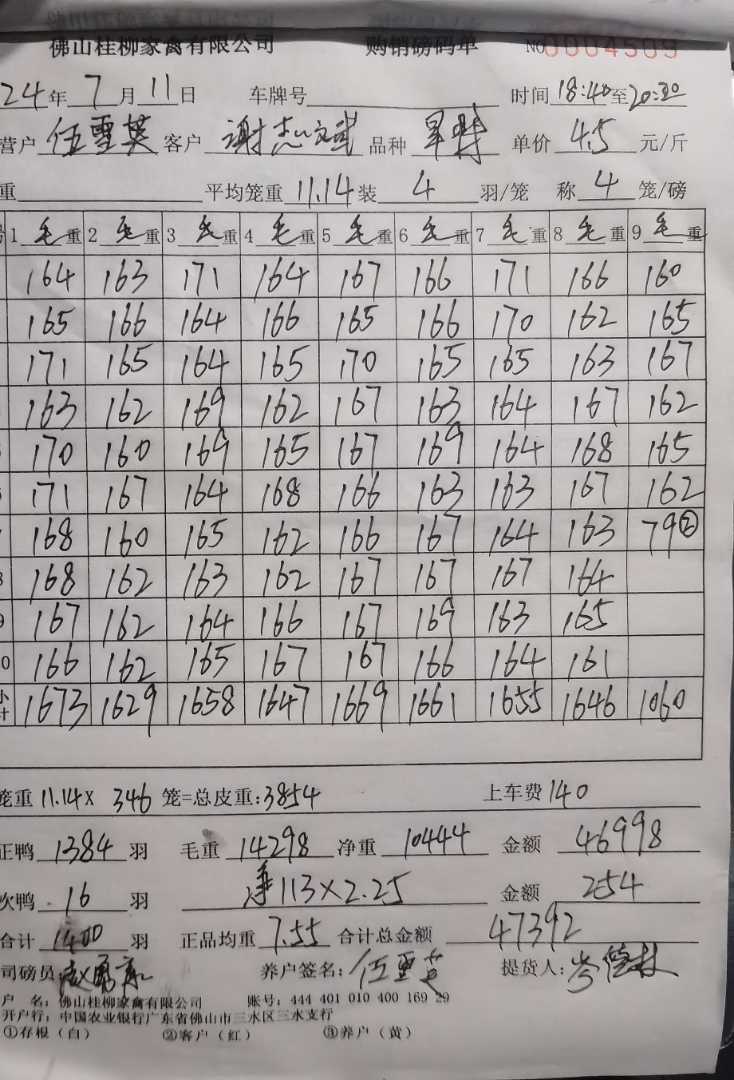 佛山桂柳家禽有限公司 购销磅码单 NO 0004509
24年 7月 11日 车牌号 时间 18:40至20:30
营户 伍雪英 客户 谢志斌 品种 单价 4.5 元/斤
重 平均笼重 11.14 装 4 羽/笼 称 4 笼/磅
1 毛重 2 毛重 3 毛重 4 毛重 5 毛重 6 毛重 7 毛重 8 毛重 9 毛重
164 163 171 164 167 166 171 166 160
165 166 164 166 165 166 170 162 165
171 165 164 165 170 165 165 163 167
163 162 169 162 167 163 164 167 162
170 160 169 165 167 169 164 168 165
171 167 164 168 166 163 163 167 162
168 160 165 162 166 167 164 163 79②
8 168 162 163 162 167 167 167 164
9 167 162 164 166 167 169 163 165
0 166 162 165 167 167 166 164 161
小计 1673 1629 1658 1647 1669 1661 1655 1646 1060
笼重 11.14 × 346 笼=总皮重:3854 上车费 140
正鸭 1384 羽 毛重 14298 净重 10444 金额 46998
次鸭 16 羽 净113×2.25 金额 254
合计 1400 羽 正品均重 7.55 合计总金额 47392
司磅员 养户签名: 伍雪英 提货人:
户 名: 佛山桂柳家禽有限公司 账号: 444 401 010 400 169 29
开户行: 中国农业银行广东省佛山市三水区三水支行
①存根(白) ②客户(红) ③养户(黄)